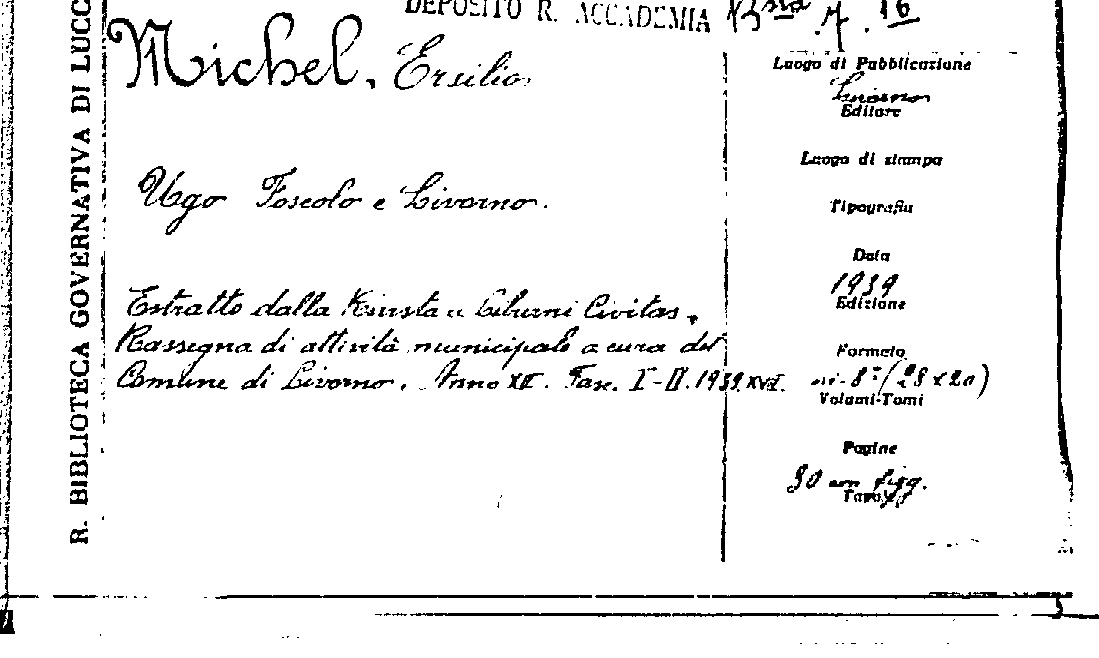 DEPOSITO R. ACCADEMIA
R. BIBLIOTECA GOVERNATIVA DI LUCC
Michel, Ersilio
Ugo Foscolo e Livorno.
Estratto dalla Rivista " Liburni Civitas "
Rassegna di attività municipale a cura del
Comune di Livorno. Anno XII. Fasc. I-II. 1939. XVII.
Luogo di Pubblicazione
Livorno
Editore
Luogo di stampa
Tipografia
Data
1939
Edizione
Formato
in-8° (28 x 20)
Volumi-Tomi
Pagine
30 con figg.
Tavole